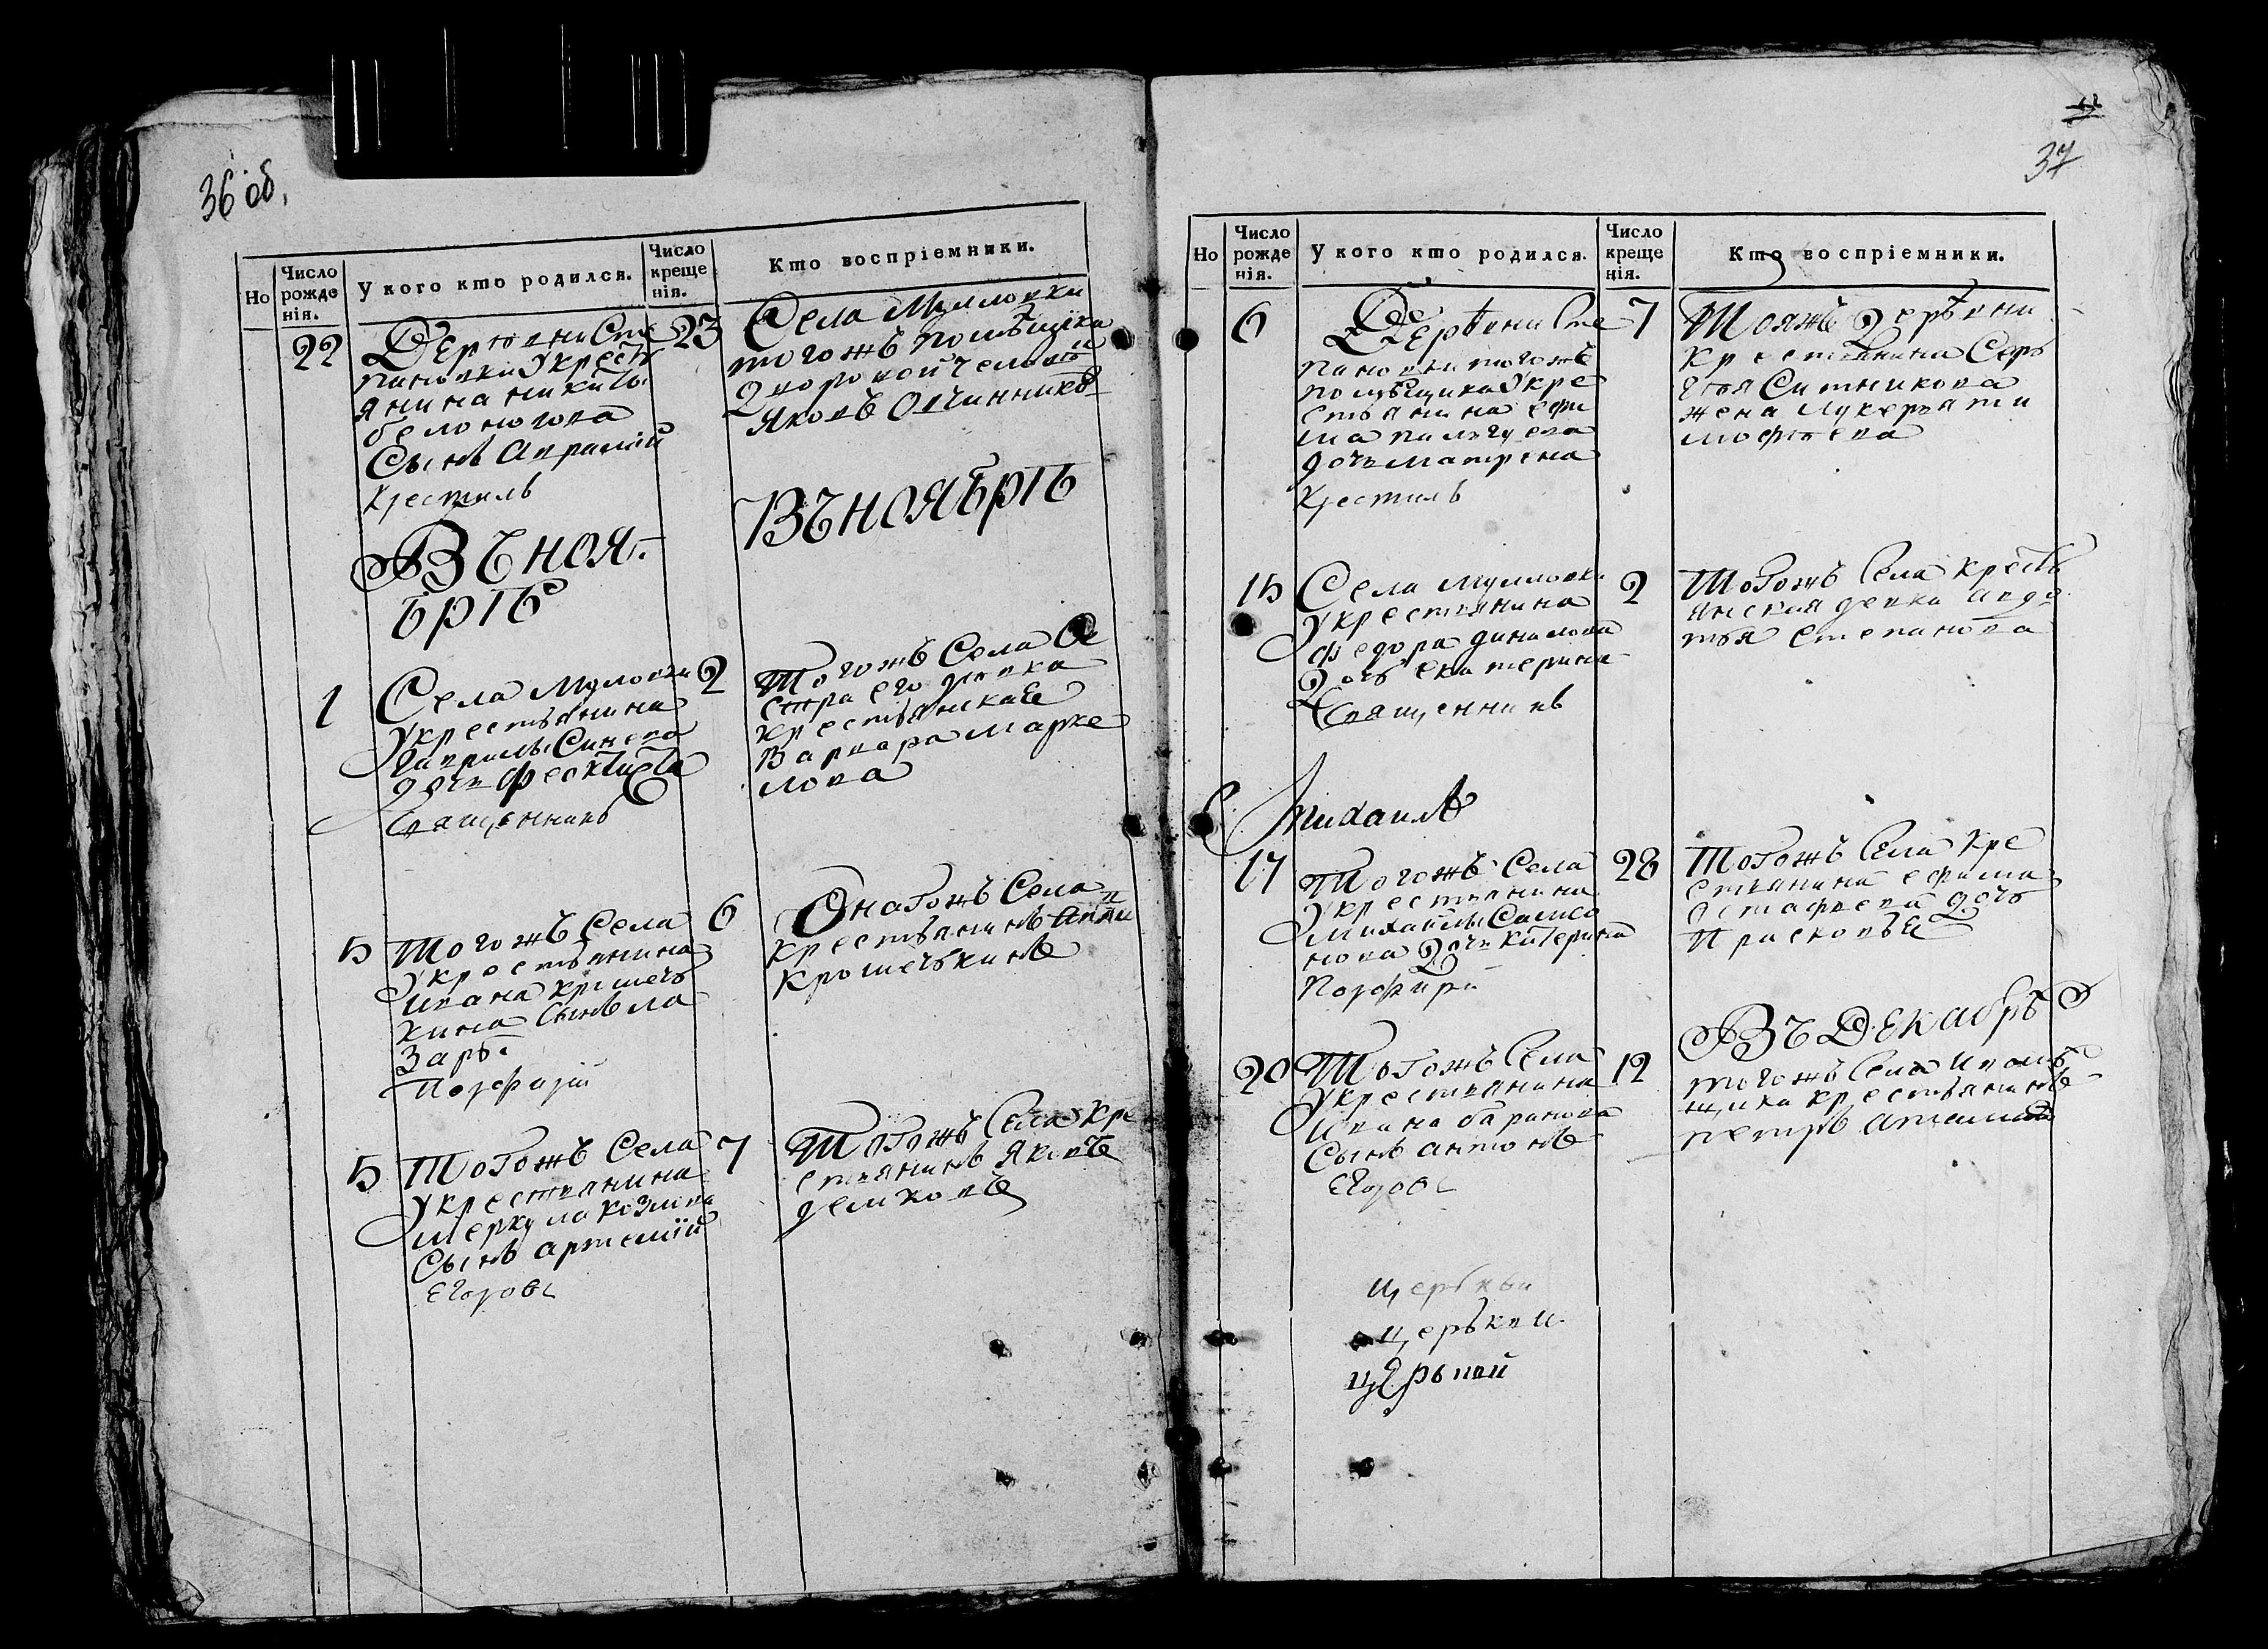 36 об.
Но
Число рожде нія.
У кого кто родился.
Число креще нія.
Кто воспріемники.
22
Деревни Сте
пановки Укресть
янина никиты
белоногова
Сынъ Авраамій
Крестилъ
23
Села Мулловки
тогожъ помѣщика
Дворовой человѣ
Яковъ Овчинниковъ
Въ ноя-
брѣ
Въ ноябрѣ
1
Села Муловки
Укрестьянина
Гаврилы Синева
дочь Феоктиста
Священникъ
2
Тогожъ Села Се
стра его девка
крестьянская
Варвара Марке
лова
5
Тогожъ Села
Укрестьянина
Ивана кромечь
кина Сынъ ла
зарь.
Порфирій
6
Онагожъ Села
крестьянинъ
Кромечькинъ
5
Тогожъ Села
Укрестьянина
меркула козлова
Сынъ артемій
Егоровъ
7
Тогожъ Села Кре
стьянинъ Яковъ
демковъ
37
Но
Число рожде нія.
У кого кто родился.
Число креще нія.
Кто воспріемники.
6
Деревни Сте
пановки тогожъ
помѣщика Укре
стьянина ефи
ма
дочь матрена
Крестилъ
7
Тояжъ Деревни
крестьянина Сер
гѣя Ситникова
жена Лукерья ти
мофеева
15
Села Мулловки
Укрестьянина
федора данилова
Дочь екатерина
Священникъ
Михаилъ
2
Тогожъ Села кресть
янская девка авдо
тья Степанова
17
Тогожъ Села
Укрестьянина
Михайлы Самсо
нова Дочь катерина
Порфири
28
Тогожъ Села Кре
стьянина ефима
Астафьева дочь
Прасковья
20
Тогожъ Села
Укрестьянина
Ивана баранова
Сынъ антонъ
Егоровъ
Въ Декабрѣ
12
тогожъ Села Ипомѣ
щика крестьянинъ
петръ
церькви
церькви
церьквй